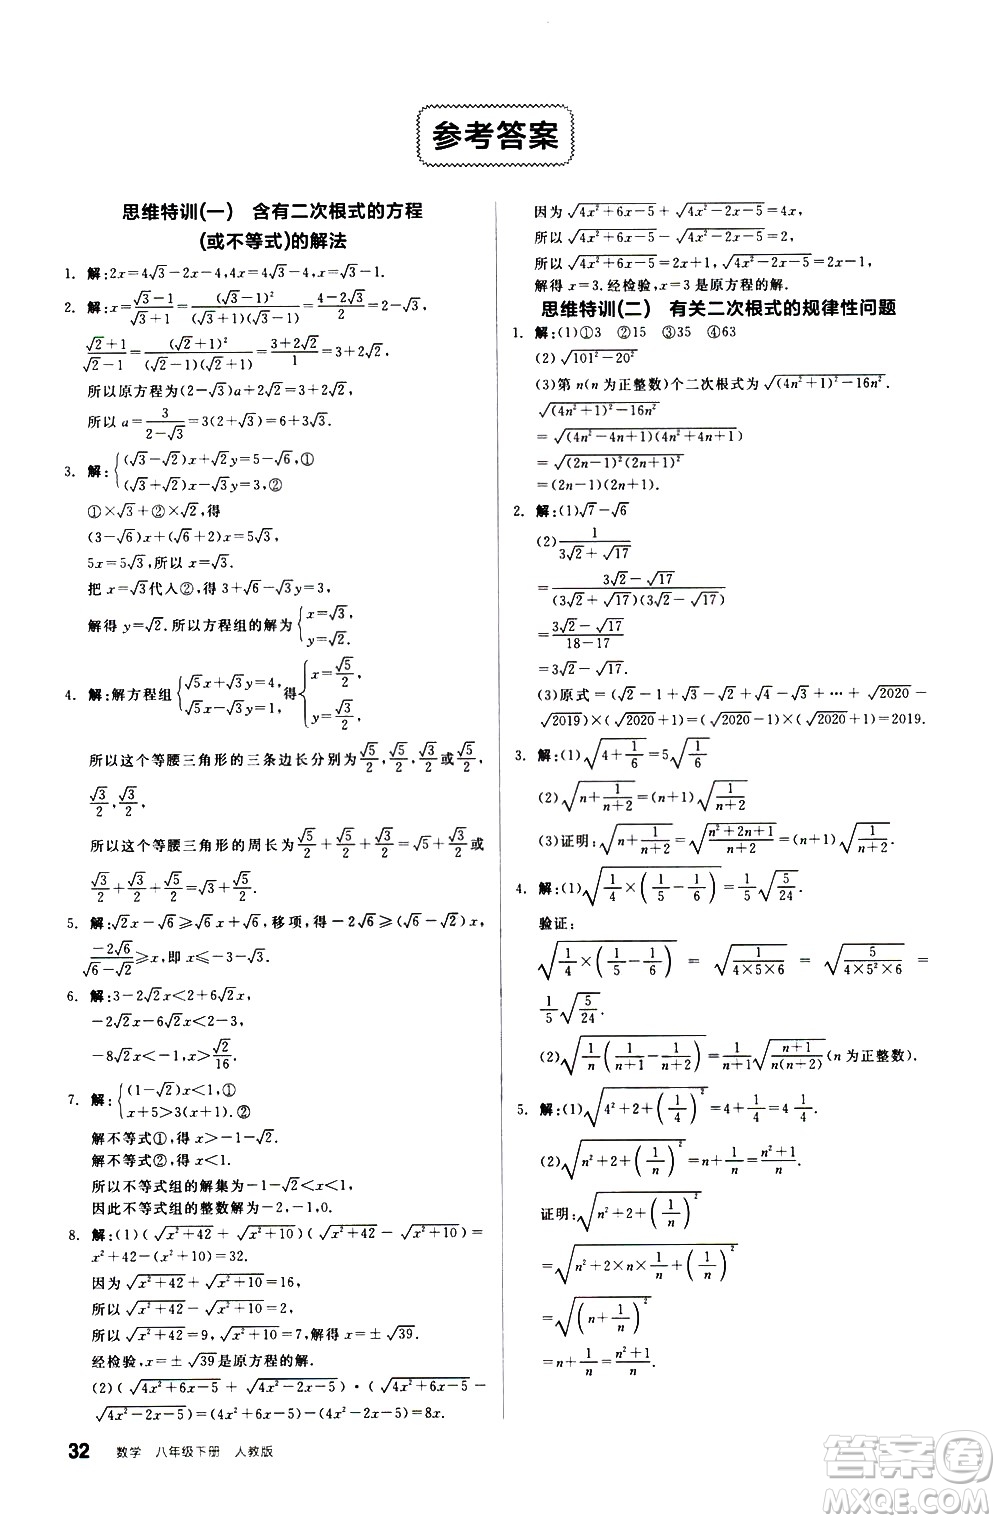 参考答案
思维特训(一) 含有二次根式的方程
(或不等式)的解法
1. 解:2x=4√3-2x-4,4x=4√3-4,x=√3-1.
2. 解:x=(√3-1)/(√3+1)=(√3-1)²/((√3+1)(√3-1))=(4-2√3)/2=2-√3,
(√2+1)/(√2-1)=(√2+1)²/((√2-1)(√2+1))=(3+2√2)/1=3+2√2,
所以原方程为(2-√3)a+2√2=3+2√2,
所以 a=3/(2-√3)=3(2+√3)=6+3√3.
3. 解:{(√3-√2)x+√2y=5-√6,①
(√3+√2)x-√3y=3,②
①×√3+②×√2,得
(3-√6)x+(√6+2)x=5√3,
5x=5√3,所以 x=√3.
把 x=√3代入②,得 3+√6-√3y=3,
解得 y=√2.所以方程组的解为{x=√3,
y=√2.
4. 解:解方程组{√5x+√3y=4,
√5x-√3y=1,得{x=√5/2,
y=√3/2,
所以这个等腰三角形的三条边长分别为√5/2,√5/2,√3/2或√5/2,
√3/2,√3/2,
所以这个等腰三角形的周长为√5/2+√5/2+√3/2=√5+√3/2或
√3/2+√3/2+√5/2=√3+√5/2.
5. 解:√2x-√6≥√6x+√6,移项,得-2√6≥(√6-√2)x,
-2√6/(√6-√2)≥x,即 x≤-3-√3.
6. 解:3-2√2x<2+6√2x,
-2√2x-6√2x<2-3,
-8√2x<-1,x>√2/16.
7. 解:{(1-√2)x<1,①
x+5>3(x+1).②
解不等式①,得 x>-1-√2.
解不等式②,得 x<1.
所以不等式组的解集为-1-√2<x<1,
因此不等式组的整数解为-2,-1,0.
8. 解:(1)(√(x²+42)+√(x²+10))(√(x²+42)-√(x²+10))=
x²+42-x²-10=32.
因为√(x²+42)+√(x²+10)=16,
所以√(x²+42)-√(x²+10)=2,
所以√(x²+42)=9,√(x²+10)=7,解得 x=±√39.
经检验,x=±√39是原方程的解.
(2)(√(4x²+6x-5)+√(4x²-2x-5))·(√(4x²+6x-5)-
√(4x²-2x-5))=(4x²+6x-5)-(4x²-2x-5)=8x.
因为√(4x²+6x-5)+√(4x²-2x-5)=4x,
所以√(4x²+6x-5)-√(4x²-2x-5)=2,
所以√(4x²+6x-5)=2x+1,√(4x²-2x-5)=2x-1,
解得 x=3.经检验,x=3 是原方程的解.
思维特训(二) 有关二次根式的规律性问题
1. 解:(1)①3 ②15 ③35 ④63
(2)√(101²-20²)
(3)第 n(n 为正整数)个二次根式为√((4n²+1)²-16n²).
√((4n²+1)²-16n²)
=√((4n²-4n+1)(4n²+4n+1))
=√((2n-1)²(2n+1)²)
=(2n-1)(2n+1).
2. 解:(1)√7-√6
(2)1/(3√2+√17)
=(3√2-√17)/((3√2+√17)(3√2-√17))
=(3√2-√17)/(18-17)
=3√2-√17.
(3)原式=(√2-1+√3-√2+√4-√3+…+√2020-
√2019)×(√2020+1)=(√2020-1)×(√2020+1)=2019.
3. 解:(1)√(4+1/6)=5√(1/6)
(2)√(n+1/(n+2))=(n+1)√(1/(n+2))
(3)证明:√(n+1/(n+2))=√((n²+2n+1)/(n+2))=(n+1)√(1/(n+2)).
4. 解:(1)√(1/4×(1/5-1/6))=1/5√(5/24).
验证:
√(1/4×(1/5-1/6))=√(1/(4×5×6))=√(5/(4×5²×6))=
1/5√(5/24).
(2)√(1/n(1/(n+1)-1/(n+2)))=1/(n+1)√((n+1)/(n(n+2)))(n 为正整数).
5. 解:(1)√(4²+2+(1/4)²)=4+1/4=4 1/4.
(2)√(n²+2+(1/n)²)=n+1/n=(n²+1)/n.
证明:√(n²+2+(1/n)²)
=√(n²+2×n×1/n+(1/n)²)
=√((n+1/n)²)
=n+1/n=(n²+1)/n.
32 数学 八年级下册 人教版
答案圈
MXQE.COM